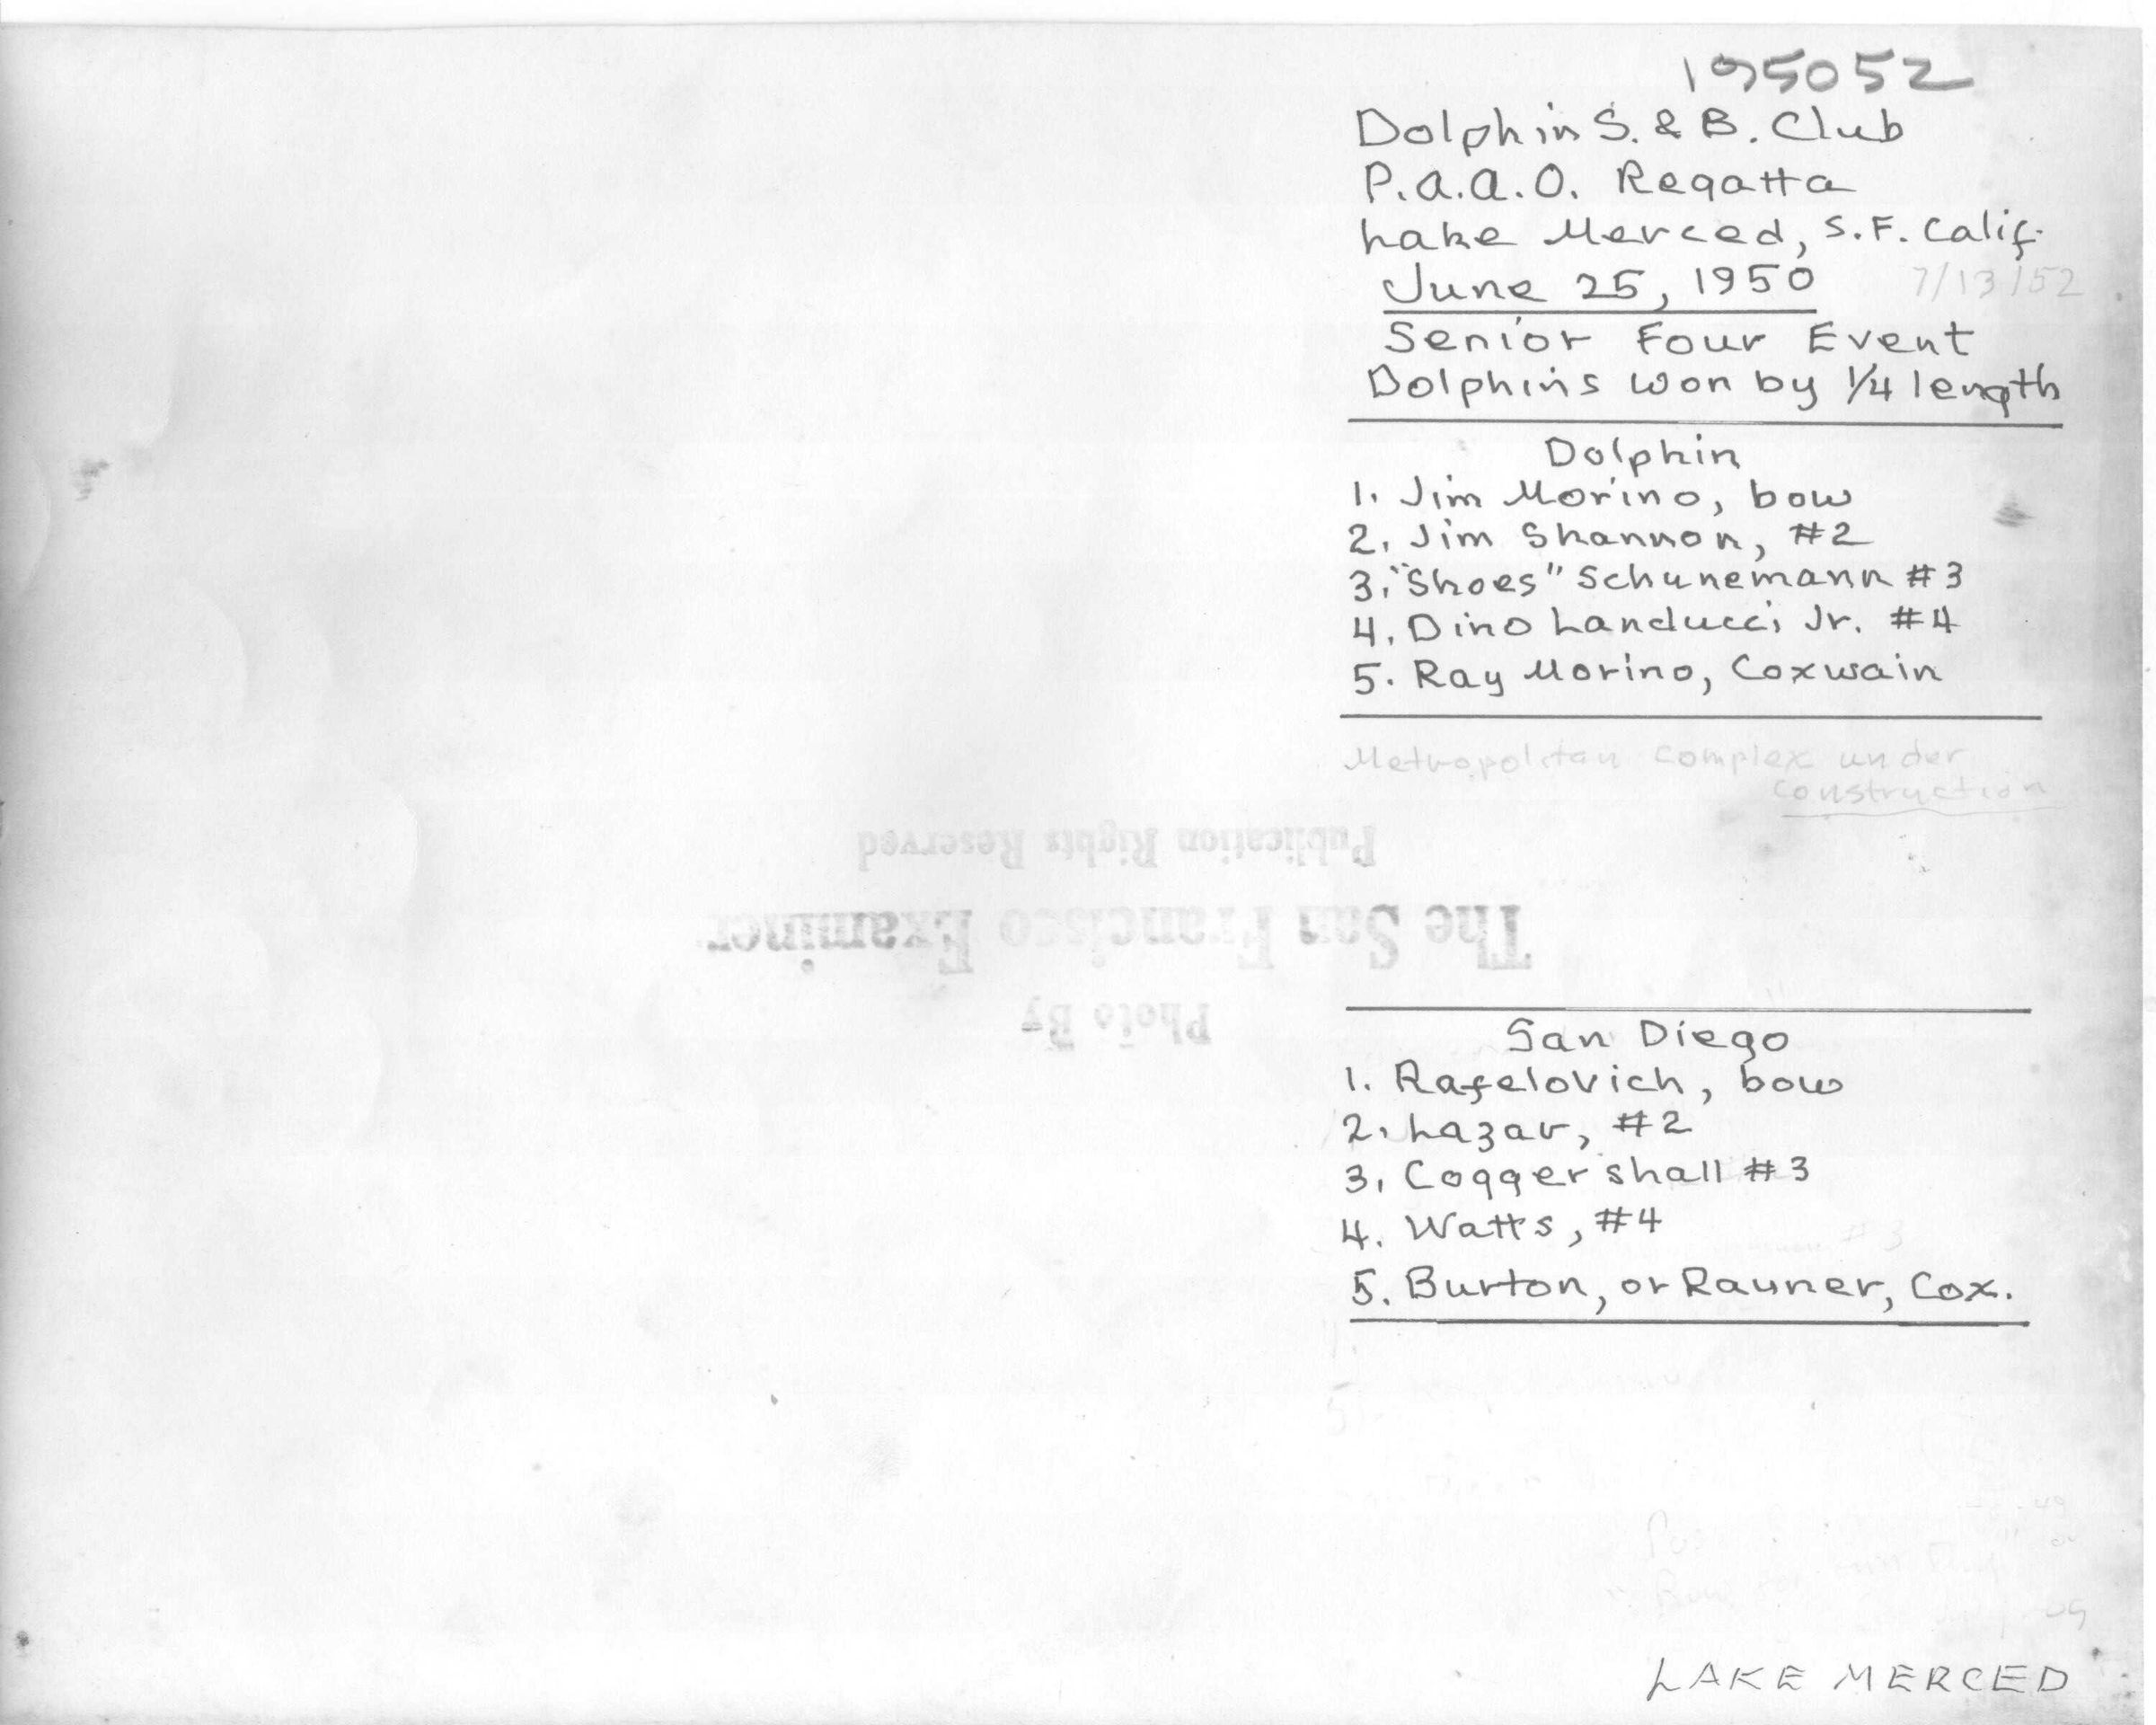 195052
Dolphin S. & B. Club
P.A.A.O. Regatta
Lake Merced, S.F. Calif.
June 25, 1950 7/13/52
Senior Four Event
Dolphins won by 1/4 length
Dolphin
1. Jim Morino, bow
2. Jim Shannon, #2
3. "Shoes" Schunemann #3
4. Dino Landucci Jr. #4
5. Ray Morino, Coxwain
Metropolitan Complex under
construction
Publication Rights Reserved
The San Francisco Examiner
Photo By
San Diego
1. Rafelovich, bow
2. Lazar, #2
3. Coggershall #3
4. Watts, #4
5. Burton, or Rauner, Cox.
LAKE MERCED